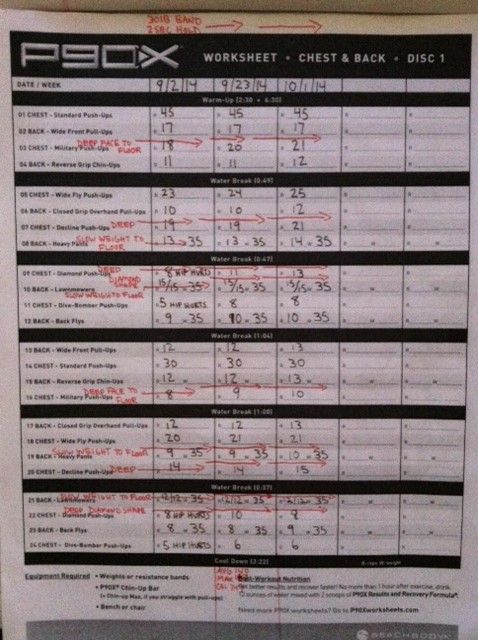 30LB BAND
2 SEC HOLD
P90X WORKSHEET • CHEST & BACK • DISC 1
DATE / WEEK 9/2/14 9/23/14 10/1/14
Warm-Up (2:30 + 6:30)
01 CHEST - Standard Push-Ups R 45 R 45 R 45 R R
02 BACK - Wide Front Pull-Ups R 17 R 17 R 17 R R
DEEP FACE TO FLOOR
03 CHEST - Military Push-Ups R 18 R 20 R 21 R R
04 BACK - Reverse Grip Chin-Ups R 11 R 11 R 12 R R
Water Break (0:49)
05 CHEST - Wide Fly Push-Ups R 23 R 24 R 25 R R
06 BACK - Closed Grip Overhand Pull-Ups R 10 R 10 R 12 R R
07 CHEST - Decline Push-Ups DEEP R 19 R 19 R 21 R R
SLOW WEIGHT TO FLOOR
08 BACK - Heavy Pants R 13 W 35 R 13 W 35 R 14 W 35 R W R W
Water Break (0:47)
DEEP DIAMOND SHAPE
09 CHEST - Diamond Push-Ups R 8 HIP HURTS R 11 R 13 R R
10 BACK - Lawnmowers R 15/15 W 35 R 15/15 W 35 R 15/15 W 35 R W R W
SLOW WEIGHT TO FLOOR
11 CHEST - Dive-Bomber Push-Ups R 5 HIP HURTS R 8 R 8 R R
12 BACK - Back Flys R 9 W 35 R 10 W 35 R 10 W 35 R W R W
Water Break (1:04)
13 BACK - Wide Front Pull-Ups R 12 R 12 R 13 R R
14 CHEST - Standard Push-Ups R 30 R 30 R 30 R R
15 BACK - Reverse Grip Chin-Ups R 12 W R 12 W R 13 W R W R W
DEEP FACE TO FLOOR
16 CHEST - Military Push-Ups R 8 R 9 R 10 R R
Water Break (1:00)
17 BACK - Closed Grip Overhand Pull-Ups R 12 R 12 R 13 R R
18 CHEST - Wide Fly Push-Ups R 20 R 21 R 21 R R
SLOW WEIGHT TO FLOOR
19 BACK - Heavy Pants R 9 W 35 R 9 W 35 R 10 W 35 R W R W
20 CHEST - Decline Push-Ups DEEP R 14 R 14 R 15 R R
Water Break (0:37)
SLOW WEIGHT TO FLOOR
21 BACK - Lawnmowers R 12/12 W 35 R 12/12 W 35 R 12/12 W 35 R W R W
DEEP DIAMOND SHAPE
22 CHEST - Diamond Push-Ups R 8 HIP HURTS R 10 R 8 R R
23 BACK - Back Flys R 8 W 35 R 8 W 35 R 9 W 35 R W R W
24 CHEST - Dive-Bomber Push-Ups R 5 HIP HURTS R 6 R 6 R R
Cool Down (3:22) R=reps W=weight
AVG 140
MAX
CAL
Equipment Required • Weights or resistance bands
• P90X® Chin-Up Bar
(+ Chin-up Max, if you struggle with pull-ups)
• Bench or chair
Post-Workout Nutrition
Get better results and recover faster! No more than 1 hour after exercise, drink
12 ounces of water mixed with 2 scoops of P90X Results and Recovery Formula®.
Need more P90X worksheets? Go to P90Xworksheets.com
BEACHBODY